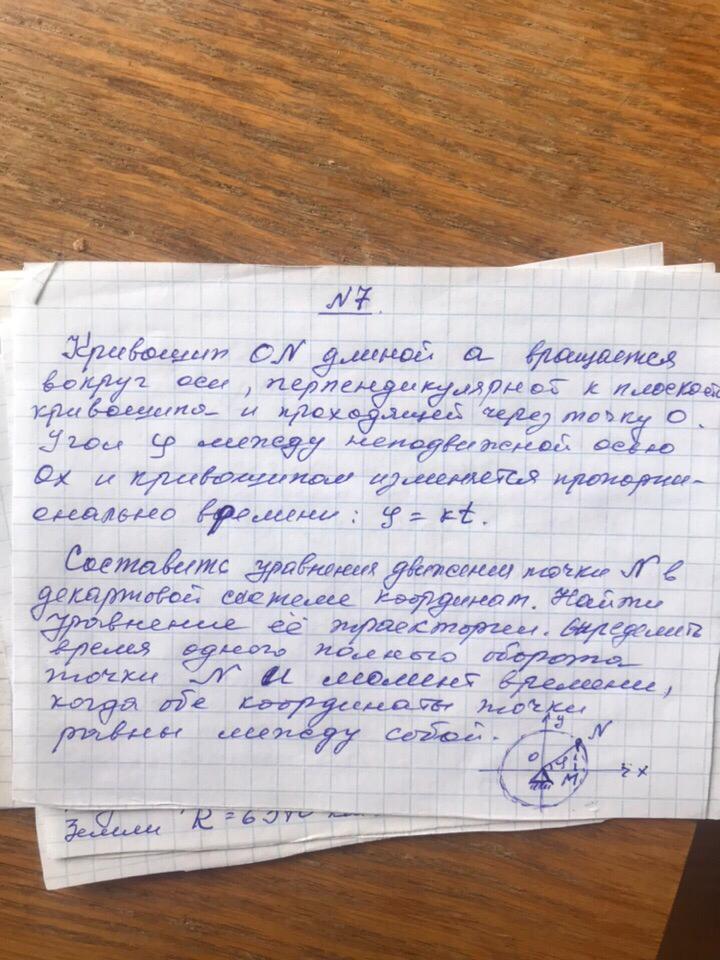 №7.
Кривошип ON длиной a вращается
вокруг оси, перпендикулярной к плоскости
кривошипа и проходящей через точку O.
Угол φ между неподвижной осью
Ox и кривошипом изменяется пропорци-
онально времени: φ = kt.
Составить уравнения движения точки N в
декартовой системе координат. Найти
уравнение её траектории. Определить
время одного полного оборота
точки N и момент времени,
когда обе координаты точки
равны между собой.
y
N
O
φ
M
x
Земли R = 6